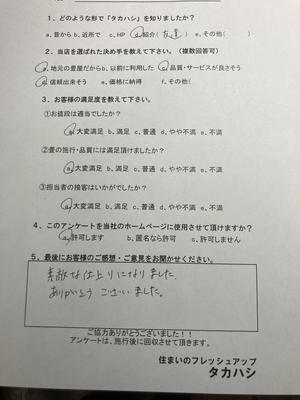 1、どのような形で「タカハシ」を知りましたか？
a、昔から b、近所で c、HP d、紹介( 友達 ) e、その他(
2、当店を選ばれた決め手を教えて下さい。（複数回答可）
a、地元の畳屋だから b、以前に利用した c、品質・サービスが良さそう
d、信頼出来そう e、価格に納得 f、その他(
3、お客様の満足度を教えて下さい。
①お値段は適当でしたか？
a、大変満足 b、満足 c、普通 d、やや不満 e、不満
②畳の施行・品質には満足頂けましたか？
a、大変満足 b、満足 c、普通 d、やや不満 e、不満
③担当者の接客はいかがでしたか？
a、大変満足 b、満足 c、普通 d、やや不満 e、不満
4、このアンケートを当社のホームページに使用させて頂けますか？
a、許可します b、匿名なら許可 c、許可しません
5、最後にお客様のご感想・ご意見をお聞かせください。
素敵な仕上りになりました。
ありがとうございました。
ご協力ありがとうございました！！
アンケートは、施行後に回収させて頂きます。
住まいのフレッシュアップ
タカハシ